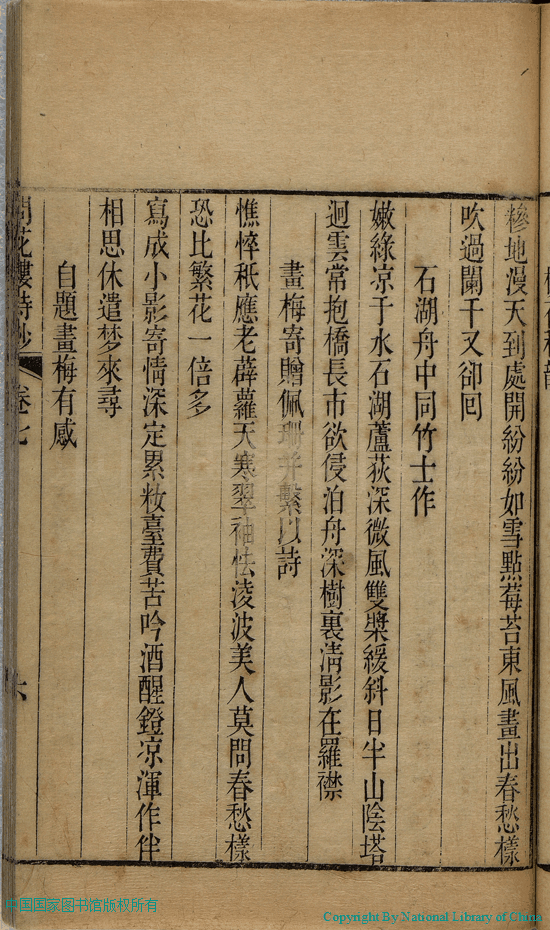 糝地漫天到處開紛紛如雪點莓苔東風畫出春愁樣
吹過闌干又卻回
石湖舟中同竹士作
嫩綠凉于水石湖蘆荻深微風雙槳緩斜日半山陰塔
迥雲常抱橋長市欲侵泊舟深樹裏清影在羅襟
畫梅寄贈佩珊并繫以詩
憔悴秖應老薜蘿天寒翠袖怯淩波美人莫問春愁樣
恐比繁花一倍多
寫成小影寄情深定累妝臺費苦吟酒醒鐙凉渾作伴
相思休遣梦來尋
自題畫梅有感
問花樓詩鈔 卷七 六
中国国家图书馆版权所有
Copyright By National Library of China